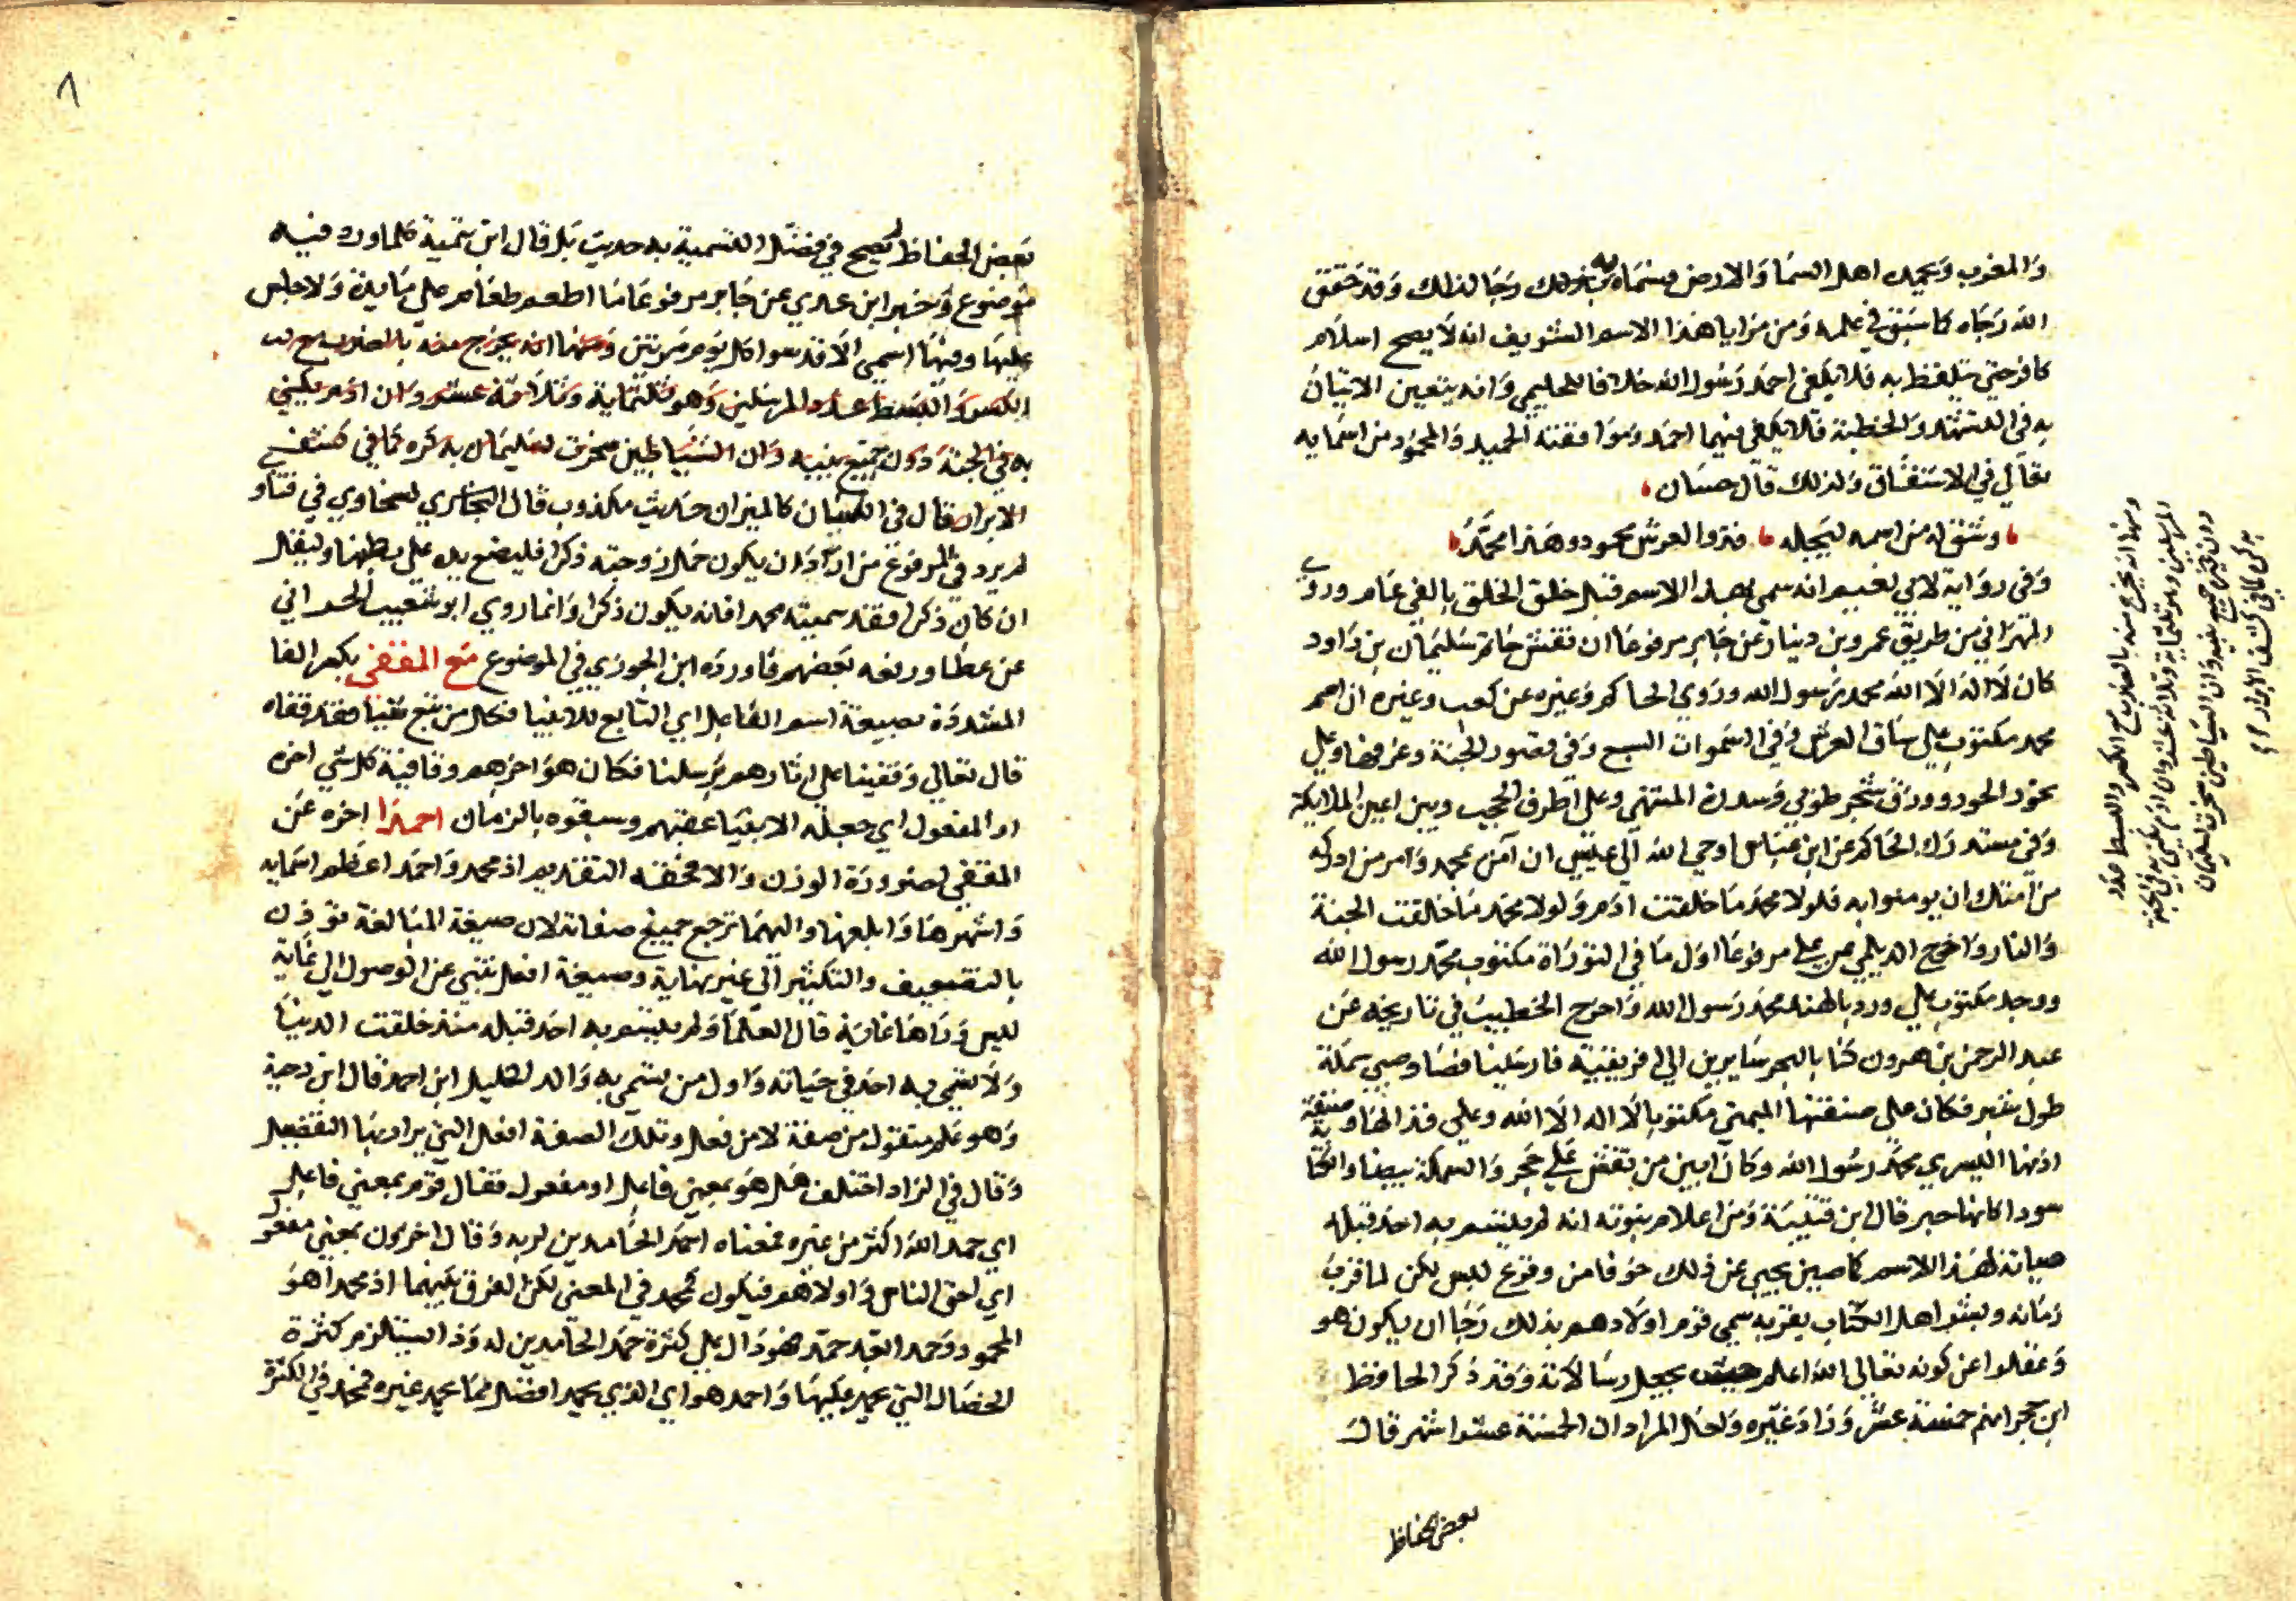 والمغرب ويحمده اهل السما والارض فسماه به بذلك رجا لذلك وقد حقق
الله رجاه كما سبق في علمه ومن مزايا هذا الاسم الشريف انه لا يصح اسلام
كافر حتي يتلفظ به فلا يكفي احمد رسول الله خلافا للحليمي وانه يتعين الاتيان
به في التشهد والخطبة فلا يكفي فيهما احمد وموافقته الحميد والمحمود من اسمايه
تعالي في الاشتقاق ولذلك قال حسان
وشق له من اسمه ليجله فذو العرش محمود وهذا محمد
وفي رواية لابي نعيم انه سمي بهذا الاسم قبل خلق الخلق بالفي عام وروي
من طريق عمرو بن دينار عن جابر مرفوعا ان نقش خاتم سليمان بن داود
كان لا اله الا الله محمد رسول الله وروي الحاكم وغيره عن كعب وغيره ان اسم
محمد مكتوب علي ساق العرش وفي السموات السبع وفي قصور الجنة وغرفها وعلي
نحور الحور وورق شجر طوبي وسدرة المنتهي وعلي اطرف الحجب وبين اعين الملايكة
وفي مستدرك الحاكم عن ابن عباس اوحي الله الي عيسي ان آمن بمحمد وامر من ادركه
من امتك ان يومنوا به فلولا محمد ما خلقت ادم ولولا محمد ما خلقت الجنة
والنار واخرج الديلمي عن علي مرفوعا اول ما في التوراة مكتوب محمد رسول الله
ووجد مكتوب علي ورد بالهند محمد رسول الله واخرج الخطيب في تاريخه عن
عبد الرحمن بن هرون كنا بالبحر سايرين الي افريقية فارسلينا فصاد صبي سمكة
طول شبر فكان علي صنفتها اليمني مكتوبا لا اله الا الله وعلي قذالها وصنفة
اذنها اليسري محمد رسول الله وكان ابين من نقش علي حجر والسمكة بيضا والكتابة
سودا كانها حبر قال ابن قتيبة ومن اعلام نبوته انه لم يتسم به احد قبله
صيانة لهذا الاسم كما صين يحيي عن ذلك خوفا من وقوع لبس لكن لما قرب
زمانه وبشر اهل الكتاب بقربه سمي قوم اولادهم بذلك رجا ان يكون هو
وغفلوا عن كونه تعالي الله اعلم حيث يجعل رسالاته وقد ذكر الحافظ
ابن حجر انهم خمسة عشر وزاد غيره ولعل المراد ان الخمسة عشر اشهر قال
بعض الحفاظ
ومنها انه يخرج منه بالضرب مع الكسر والبسط عدد
المرسلين وهو ثلثماية وثلاثة عشر وان ادم يكني به في الجنة
دون جميع بنيه وان الشياطين سخرت لسليمان
بذكره كما في كشف الابرار
٨
بعض الحفاظ لم يصح في فضل التسمية به حديث بل قال ابن تيمية كلما ورد فيه
موضوع وخبر ابن عدي عن جابر مرفوعا ما اطعم طعام علي مايدة ولا جلس
عليها وفيها اسمي الا قدسوا كل يوم مرتين ومنها انه يخرج منه بالضرب مع
الكسر والبسط عدد المرسلين وهو ثلثماية وثلاثة عشر وان ادم يكني
به في الجنة دون جميع بنيه وان الشياطين سخرت لسليمان بذكره كما في كشف
الابرار قال في اللسان كالميزان حديث مكذوب قال السخاوي في فتاو
لم يرد في المرفوع من اراد ان يكون حمل زوجته ذكرا فليضع يده علي بطنها وليقل
ان كان ذكرا فقد سميته محمدا فانه يكون ذكرا وانما روي ابو شعيب الحراني
عن عطا ورفعه بعضهم فاورده ابن الجوزي في الموضوع مع المقفي بكسر الفا
المشددة بصيغة اسم الفاعل اي التابع للانبيا فكل من تبع شيا فقد قفاه
قال تعالي وقفينا علي اثارهم برسلنا فكان هو اخرهم وقافية كل شي اخره
او المفعول اي جعله الانبيا عقبهم وسبقوه بالزمان احمدا اخره عن
المقفي لضرورة الوزن والا فحقه التقديم اذ محمد واحمد اعظم اسمايه
واشهرها وابلغها واليهما ترجع جميع صفاته لان صيغة المبالغة توذن
بالتضعيف والتكثير الي غير نهاية وصيغة افعل تنبي عن الوصول الي غاية
ليس وراها غاية قال العلما ولم يتسم به احد قبله منذ خلقت الدنيا
ولا تسمي به احد في حياته واول من تسمي به والد الخليل ابن احمد قال ابن دحية
وهو علم منقول من صفة لا من فعل وتلك الصفة افعل التي يراد بها التفضيل
وقال في الزاد اختلف هل هو بمعني فاعل او مفعول فقال قوم بمعني فاعل
اي حمد الله اكثر من غيره فمعناه احمد الحامدين لربه وقال اخرون بمعني مفعول
اي احق الناس واولاهم فيكون كمحمد في المعني لكن الفرق بينهما اذ محمدا هو
المحمود وحمد العبد حمد فهو دال علي كثرة حمد الحامدين له وذا يستلزم كثرة
الخصال التي يحمد عليها واحمد هو اي الذي يحمد افضل مما يحمد غيره فمحمد في الكثرة